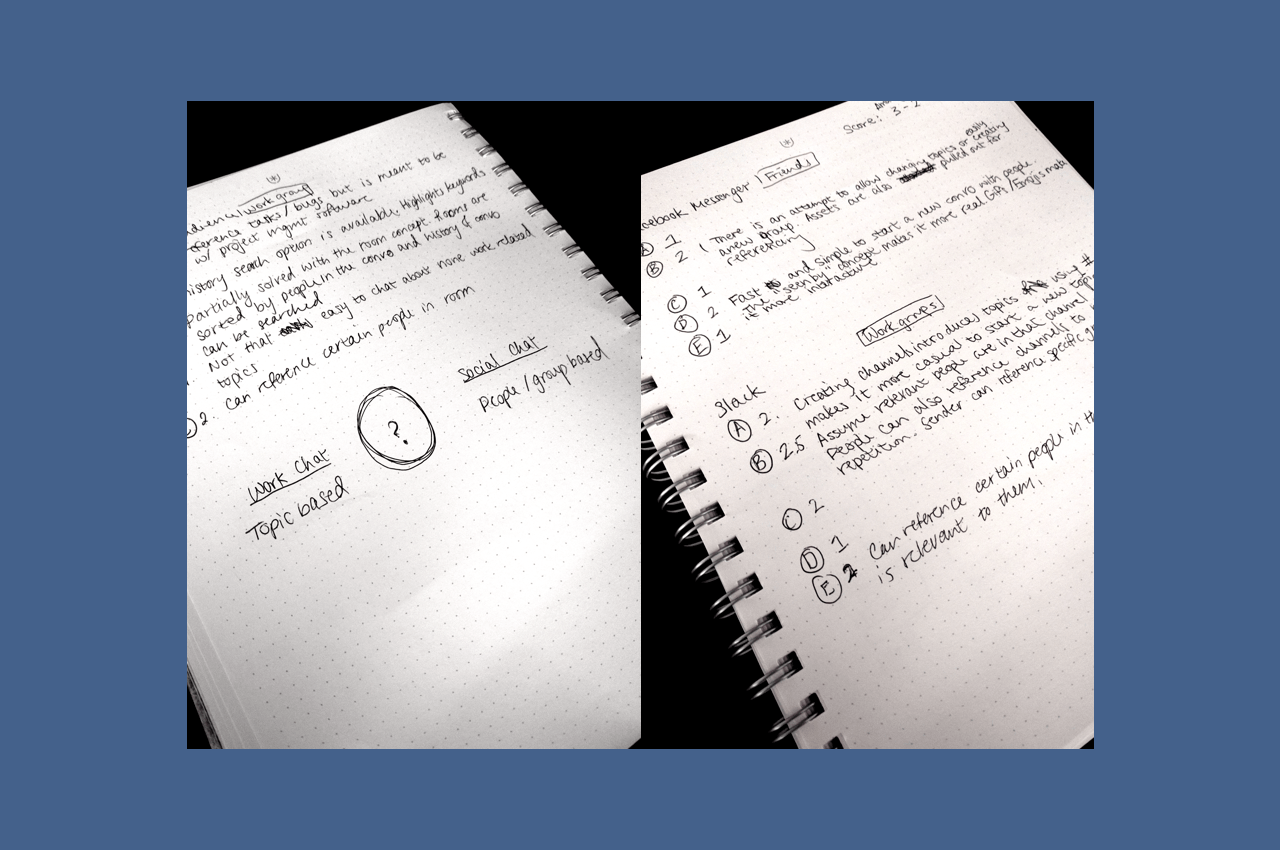 work group
reference tasks/bugs but is meant to be
w/ project mgmt software
history search option is available. Highlights keywords
Partially solved with the room concept. Rooms are
sorted by people in the convo and history & convo
can be searched
Not that easy to chat about none work related
topics
2. can reference certain people in room
?
Social chat
People/group based
Work Chat
Topic based
Score: 3-2
cebook Messenger | Friends
A 1
B 2 There is an attempt to allow changing topics or easily creating
a new group. Assets are also pulled out for
referencing
C 1
D 2 Fast and simple to start a new convo with people.
The "seen by" concept makes it more real Gifs/Emojis make
E 1 it more interactive
Work groups
Slack
A 2. Creating channels introduces topics using #
makes it more casual to start a new topi
B 2.5 Assume relevant people are in that channel
People can also reference channels to
repetition. Sender can reference specific
C 2
D 1
E 2 Can reference certain people in th
is relevant to them.